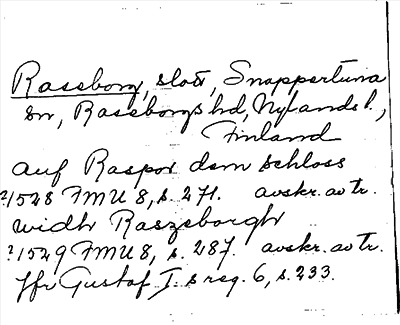 Raseborg, slott, Snappertuna
sn, Raseborgs hd, Nylands l.,
Finland
auf Raspor dem schloss
?1528 FMU 8, s. 271. avskr. av tr.
widh Raszeborgh
?1529 FMU 8, s. 287. avskr. av tr.
Jfr Gustaf I. s reg. 6, s. 233.